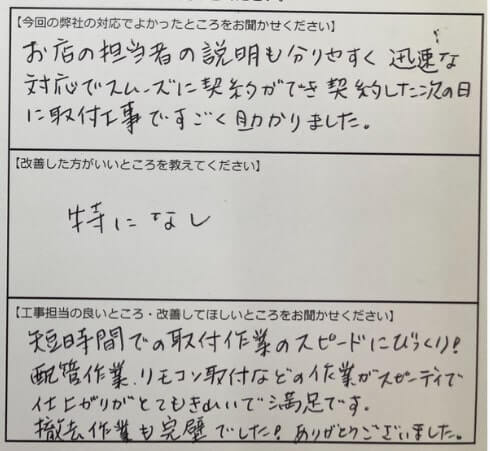 【今回の弊社の対応でよかったところをお聞かせください】
お店の担当者の説明も分りやすく 迅速な
対応でスムーズに契約ができ契約した次の日
に取付工事ですごく助かりました。
【改善した方がいいところを教えてください】
特になし
【工事担当の良いところ・改善してほしいところをお聞かせください】
短時間での取付作業のスピードにびっくり!
配管作業、リモコン取付などの作業がスピーディで
仕上がりがとてもきれいで満足です。
撤去作業も完璧でした! ありがとうございました。